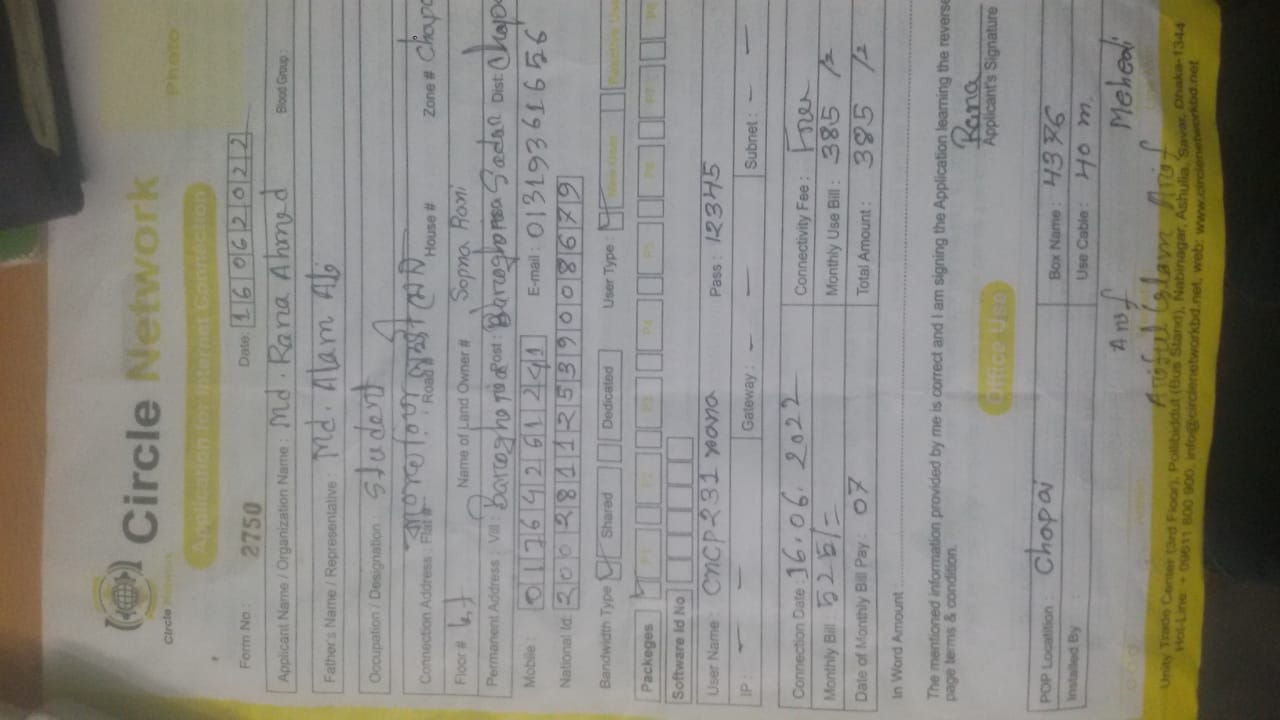 Circle Network
Circle Network
Photo
Application for Internet Connection
Form No : 2750 Date: 16062022
Applicant Name / Organization Name : Md. Rana Ahmed Blood Group:
Father's Name / Representative : Md. Alam Ali
Occupation / Designation : Student
Connection Address : Flat # Road # House # Zone # Chapa
Floor # 1st Name of Land Owner # Sopna Rani
Permanent Address : Vill : Post : Sadar Dist: Chapa
Mobile: E-mail : 01319361656
National Id: 20028112539008679
Bandwidth Type Shared Dedicated User Type :
Packeges P1 P2 P3 P4 P5 P6 P7 P8
Software Id No
User Name : CNCP231 rana Pass : 12345
IP : - - Gateway : - - Subnet : - -
Connection Date : 16.06.2022 Connectivity Fee :
Monthly Bill : 525/= Monthly Use Bill : 385 /=
Date of Monthly Bill Pay : 07 Total Amount : 385 /=
In Word Amount :
The mentioned information provided by me is correct and I am signing the Application learning the reverse
page terms & condition.
Rana
Applicant's Signature
Office Use
POP Locatition : Chopai Box Name : 4376
Installed By : Use Cable : 40 m.
Arif Mehedi
Ariful Islam Arif
Unity Trade Center (3rd Floor), Pollibiddut (Bus Stand), Nabinagar, Ashulia, Savar, Dhaka-1344
Hot-Line + 09611 800 900, info@circlenetworkbd.net, web: www.circlenetworkbd.net